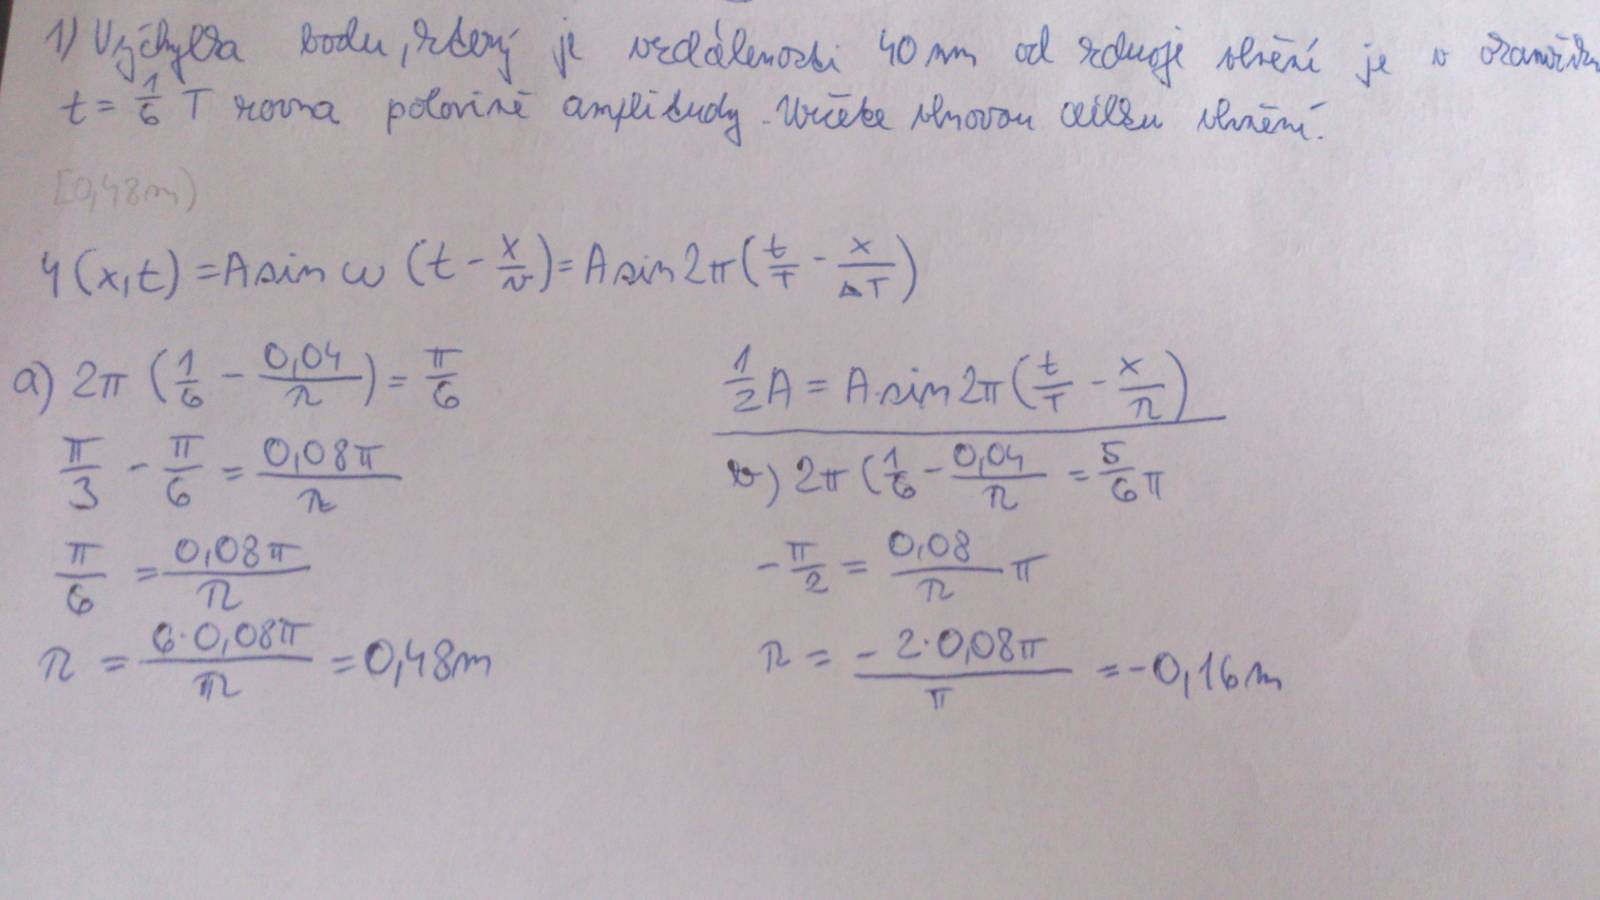 1) Výchylka bodu, který je vzdálenosti 40 mm od zdroje vlnění je v okamžiku
t = 1/6 T rovna polovině amplitudy. Určete vlnovou délku vlnění.
[0,48m)
y(x,t) = A sin ω (t - x/v) = A sin 2π (t/T - x/ΔT)
a) 2π (1/6 - 0,04/λ) = π/6
π/3 - π/6 = 0,08π/λ
π/6 = 0,08π/λ
λ = 6·0,08π/π = 0,48m
1/2 A = A sin 2π (t/T - x/λ)
b) 2π (1/6 - 0,04/λ = 5/6 π
-π/2 = 0,08/λ π
λ = -2·0,08π/π = -0,16m